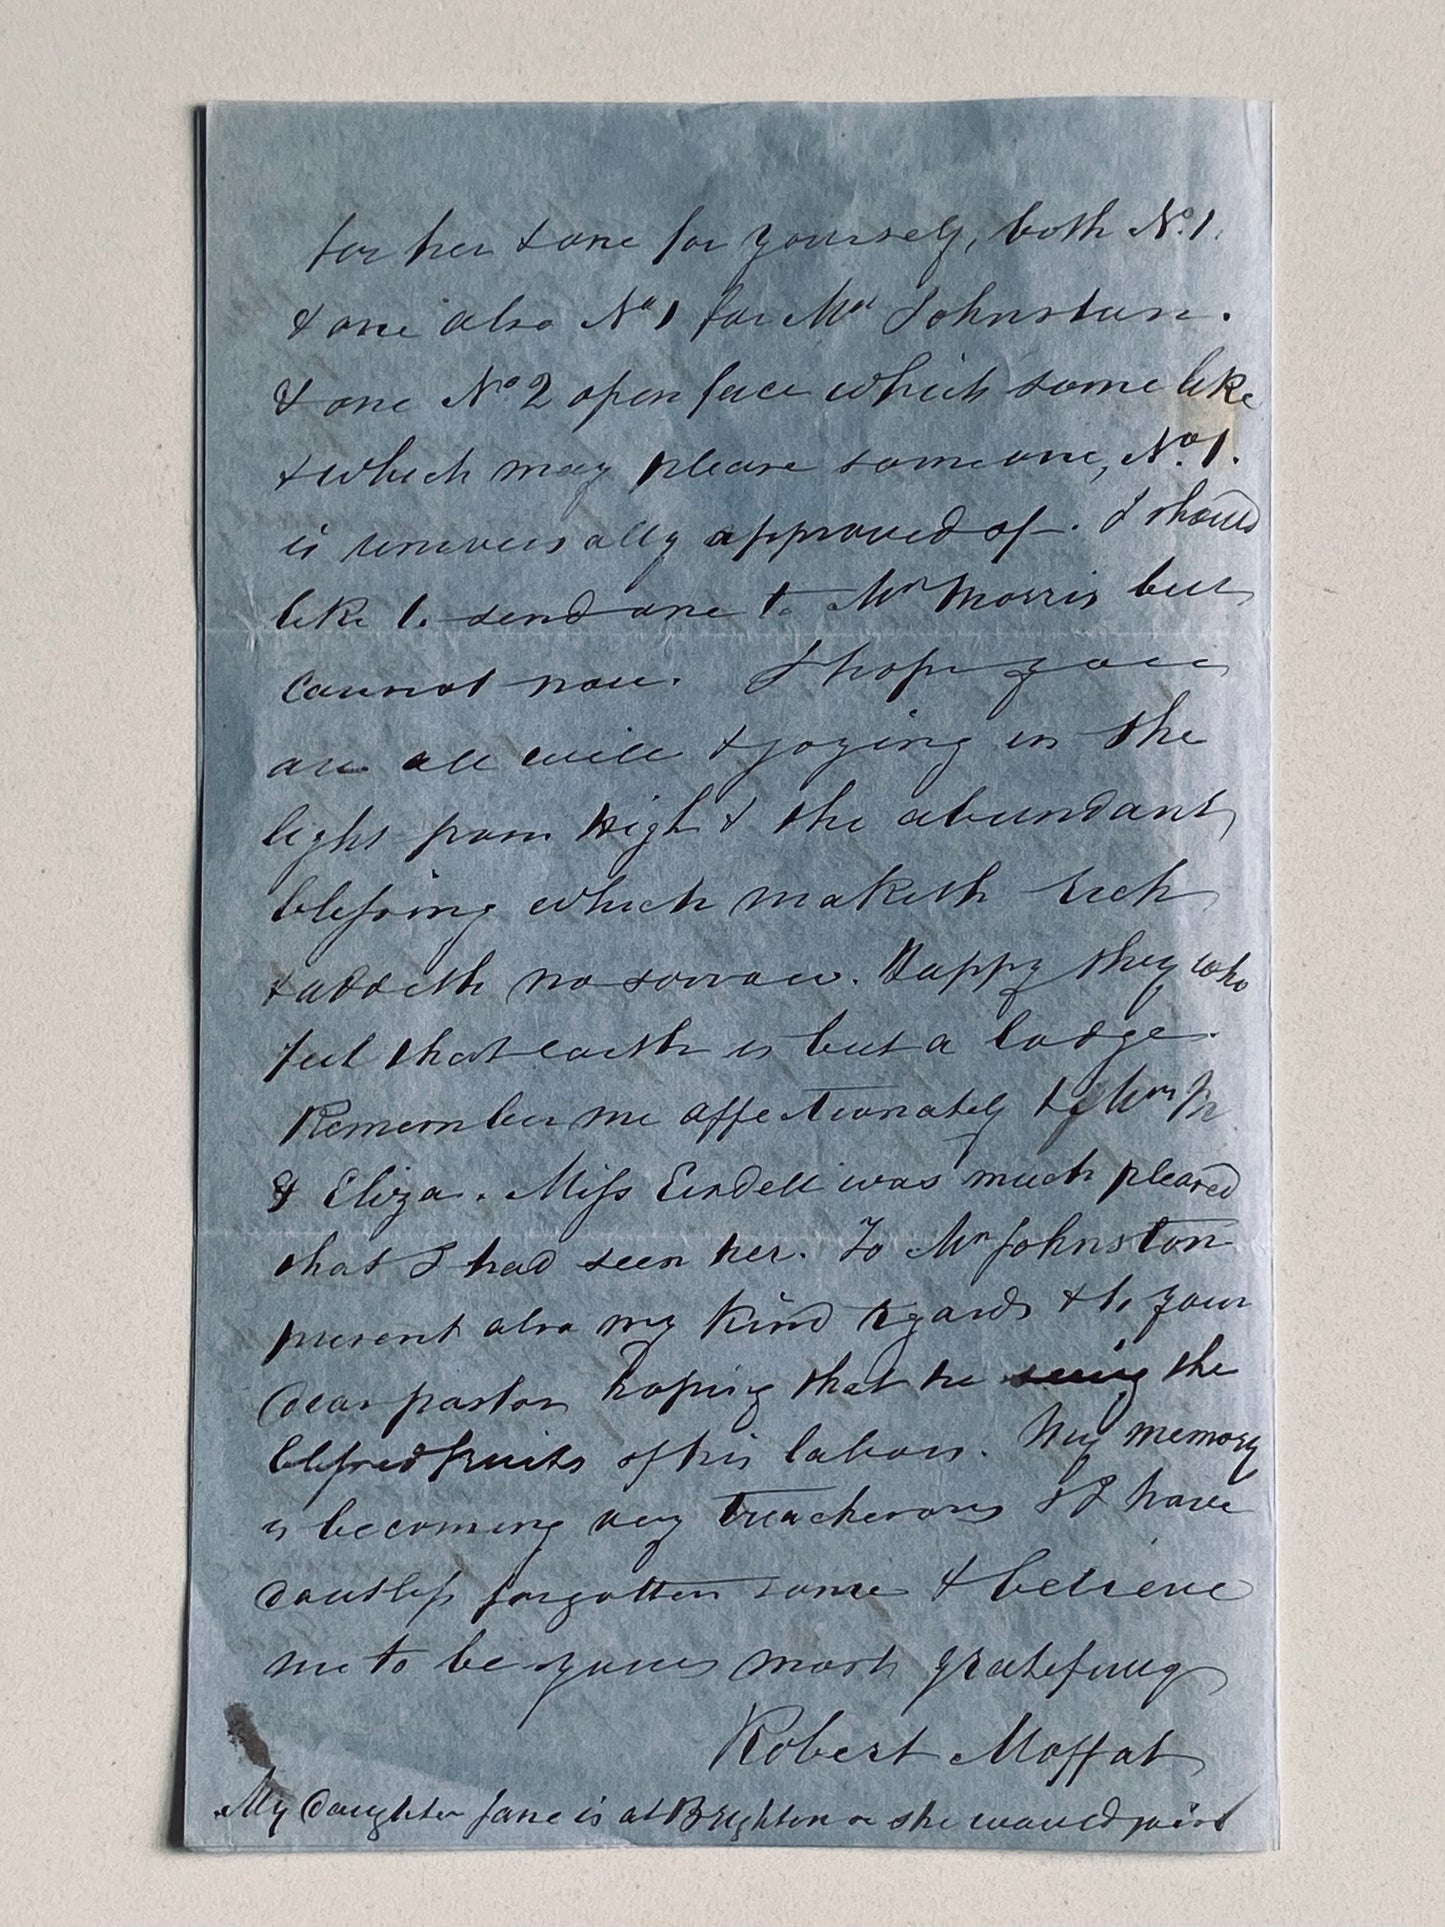 for her & one for yourself, both No. 1.
& one also No 1 for Mr Johnston.
& one No 2 open face which some like
& which may please someone, No. 1.
is universally approved of. I should
like to send one to Mr Morris but
cannot now. I hope you
are all well & joying in the
light from high & the abundant
blessing which maketh rich
& addeth no sorrow. Happy they who
feel that earth is but a lodge.
Remember me affectionately to Mrs
& Eliza. Miss was much pleased
that I had seen her. To Mr Johnston
present also my kind regards & to your
dear pastor hoping that he seeing the
blessed fruits of his labors. My memory
is becoming very treacherous & I have
doubtless forgotten some & believe
me to be yours most gratefully
Robert Moffat
My daughter Jane is at Brighton or she would join